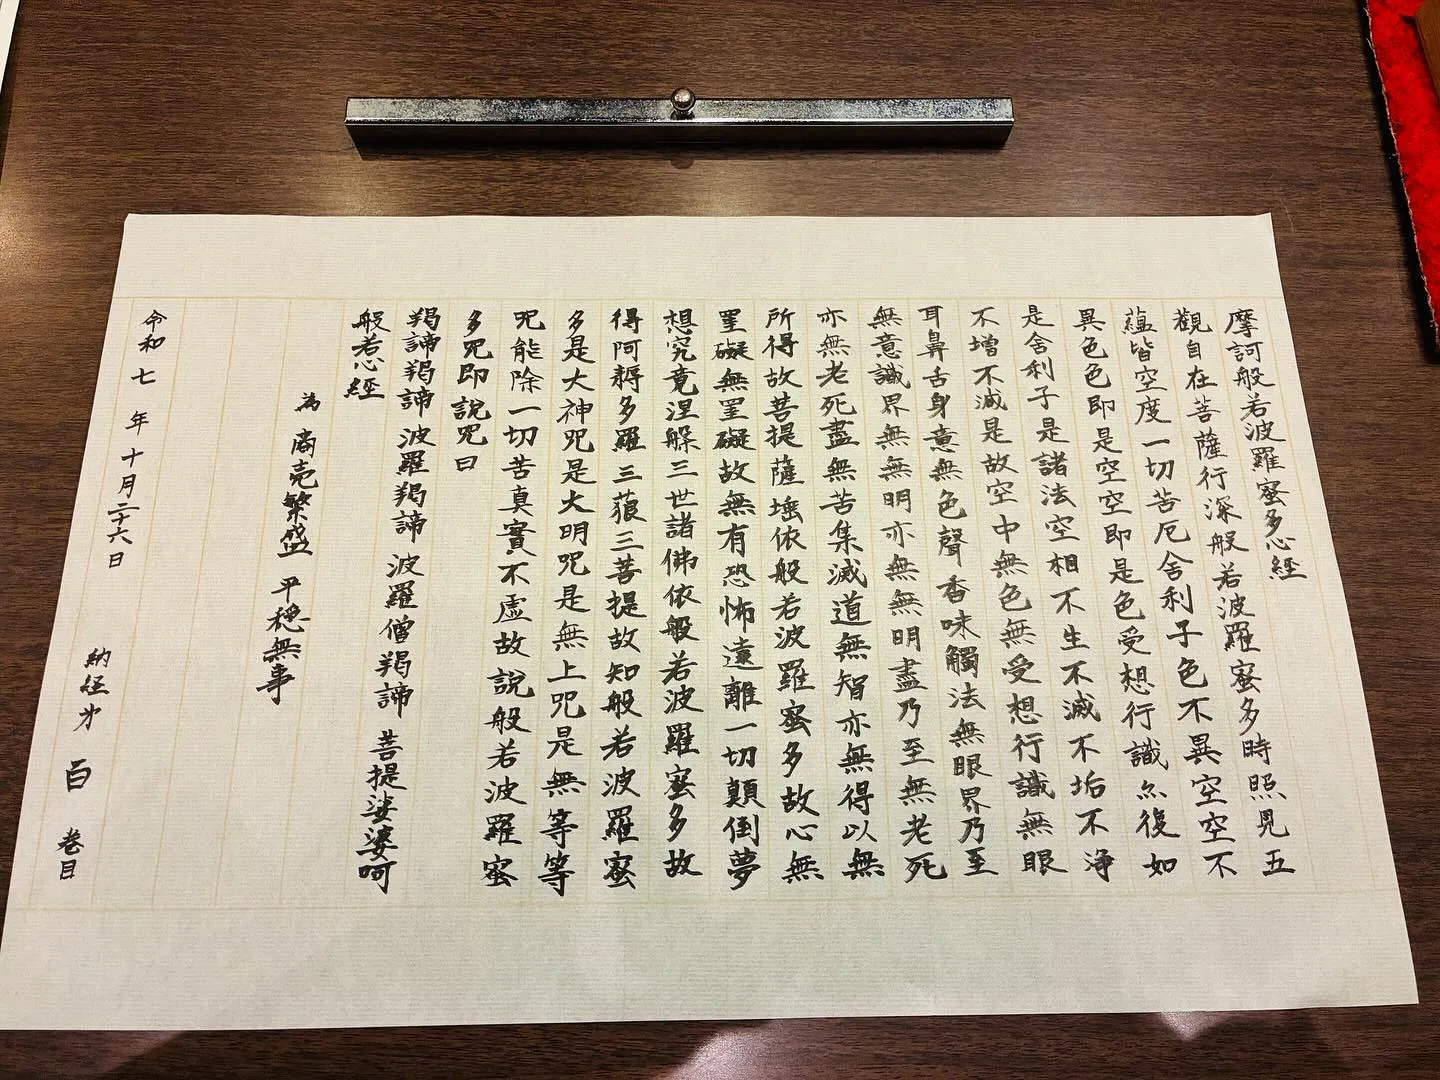 摩訶般若波羅蜜多心経
觀自在菩薩行深般若波羅蜜多時照見五
蘊皆空度一切苦厄舎利子色不異空空不
異色色即是空空即是色受想行識亦復如
是舎利子是諸法空相不生不滅不垢不浄
不増不減是故空中無色無受想行識無眼
耳鼻舌身意無色聲香味觸法無眼界乃至
無意識界無無明亦無無明盡乃至無老死
亦無老死盡無苦集滅道無智亦無得以無
所得故菩提薩埵依般若波羅蜜多故心無
罣礙無罣礙故無有恐怖遠離一切顛倒夢
想究竟涅槃三世諸佛依般若波羅蜜多故
得阿耨多羅三藐三菩提故知般若波羅蜜
多是大神咒是大明咒是無上咒是無等等
咒能除一切苦真實不虚故説般若波羅蜜
多咒即説咒曰
羯諦羯諦 波羅羯諦 波羅僧羯諦 菩提娑婆呵
般若心経
為 商売繁盛 平穏無事
令和七 年 十月二十六日 納経 㐧 百 巻目